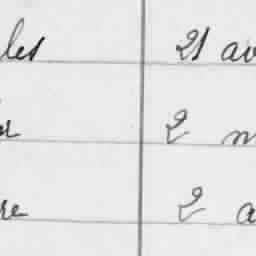 les 21 av
er 2 m
re 2 a